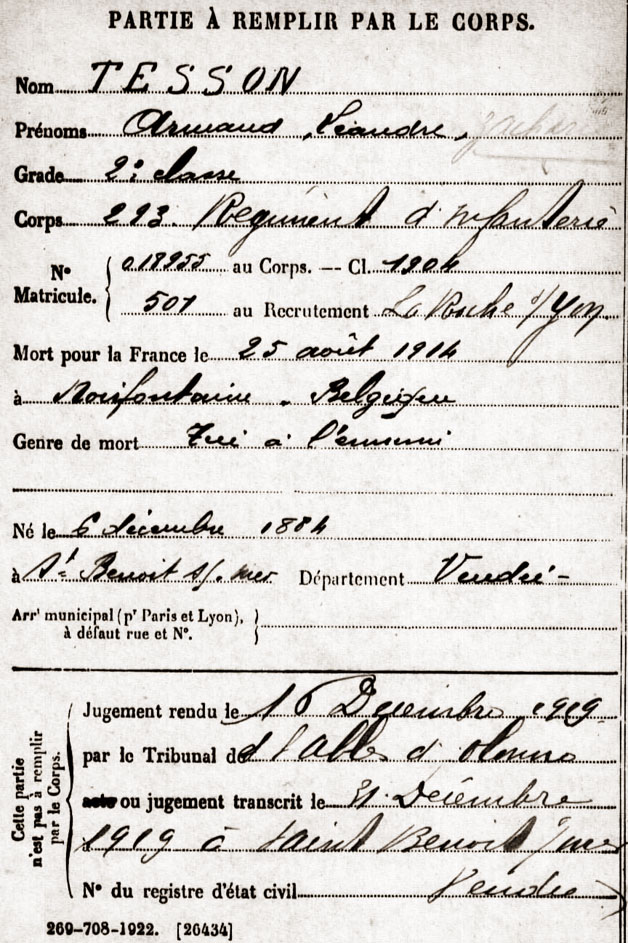 PARTIE À REMPLIR PAR LE CORPS.
Nom TESSON
Prénoms Armand, Léandre,
Grade 2e classe
Corps 293. Régiment d'Infanterie
N° Matricule. 018955 au Corps. — Cl. 1904
501 au Recrutement La Roche s/ Yon
Mort pour la France le 25 août 1914
à Noirfontaine. Belgique
Genre de mort Tué à l'ennemi
Né le 6 décembre 1884
à St Benoit s/. mer Département Vendée
Arrt municipal (pr Paris et Lyon),
à défaut rue et N°.
Cette partie n'est pas à remplir par le Corps.
Jugement rendu le 16 Décembre 1919
par le Tribunal des Sables d'Olonne
acte ou jugement transcrit le 31 Décembre
1919 à Saint Benoit s/mer
N° du registre d'état civil Vendée
269-708-1922. [26434]